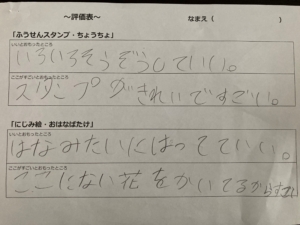 ～評価表～　なまえ（　　　）
「ふうせんスタンプ・ちょうちょ」
いいとおもったところ
いろいろそうぞうしていい。
ここがすごいとおもったところ
スタンプがきれいですごい。
「にじみ絵・おはなばたけ」
いいとおもったところ
はなみたいにはってていい。
ここがすごいとおもったところ
ここにない花をかいてるからすごい